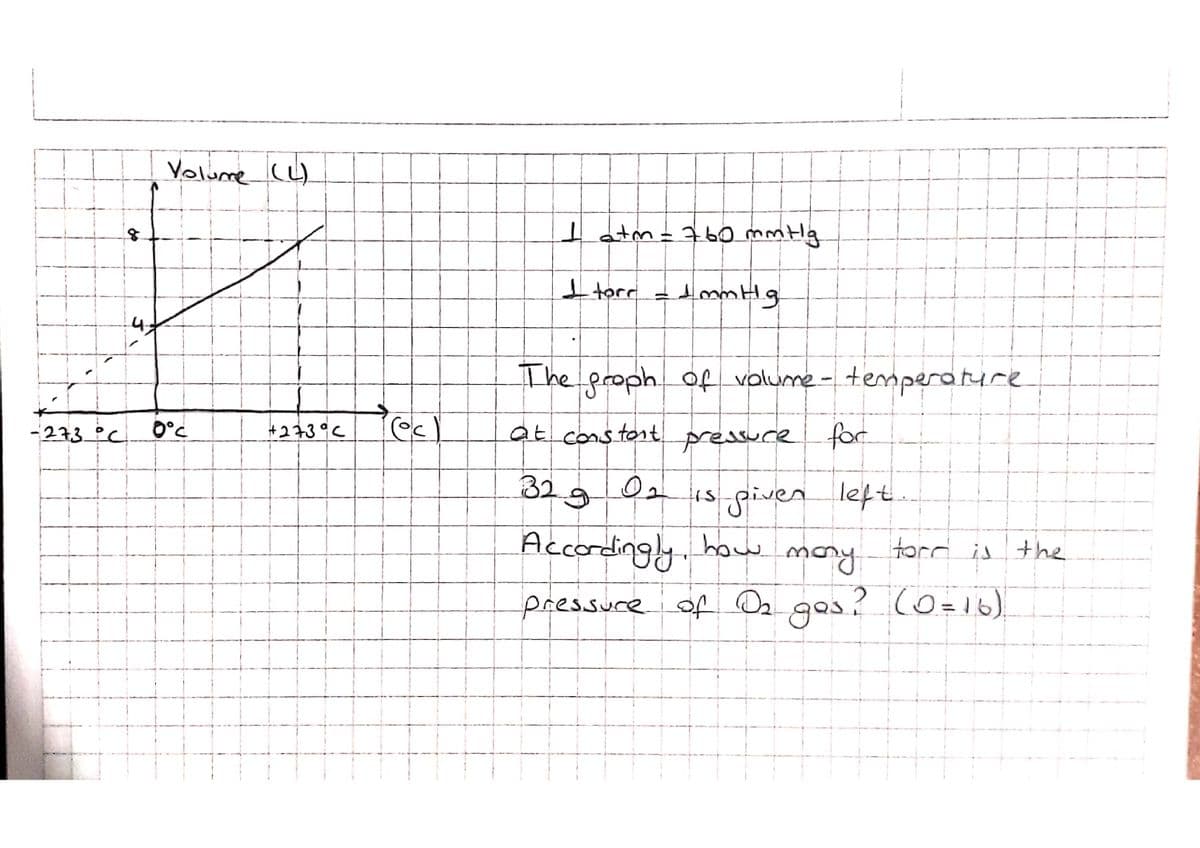 Volume (L)
8
4
-273 °C 0°C +273°C (°C)
1 atm = 760 mmHg
1 torr = 1 mmHg
The graph of volume - temperature
at constant pressure for
32 g O2 is given left.
Accordingly, how many torr is the
pressure of O2 gas? (O=16)